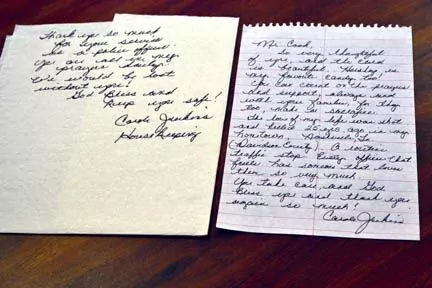 Thank you so much
for your service
as a police officer.
Up on all in my
prayers daily.
We would be lost
without you!
God Bless and
keep you safe!
Carole Jenkins
Housekeeping
Mr. Cook,
So very thoughtful
of you, and the card
is beautiful. Hershey is
my favorite candy too!
You can count on the prayers
and support, always and
with your families, for they
too, make the sacrifice.
The love of my life was shot
and killed 25 yrs ago in my
hometown, Nashville, Tn
(Davidson County). A routine
traffic stop. Every officer that
has someone that loves
them so very much.
You take care, and God
Bless you and thank you
again so much!
Carole Jenkins